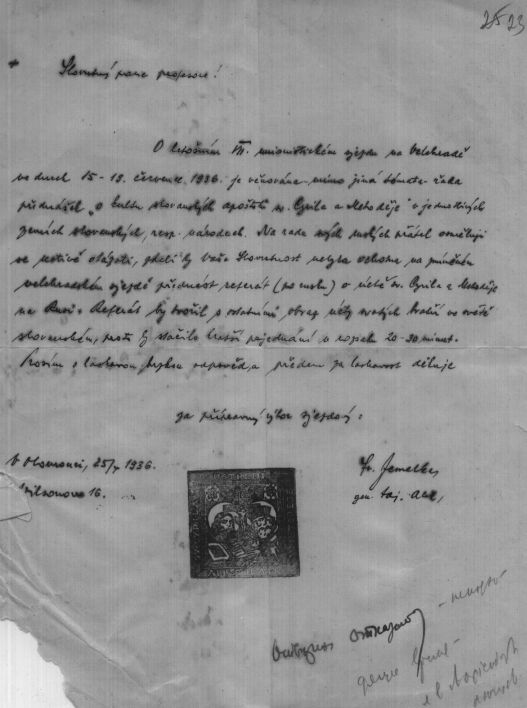 25 23
Slovutný pane profesore!
O letošním VII. unionistickém sjezdu na Velehradě
ve dnech 15-19. července 1936. je věnována mimo jiná témata řada
přednášek "o kultu slovanských apoštolů sv. Cyrila a Metoděje" v jednotlivých
zemích slovanských, resp. národech. Na radu svých přátel osměluji
se uctivě otázati, zdali by Vaše Slovutnost nebyla ochotna na
velehradském sjezdě přednést referát (po rusku) o úctě sv. Cyrila a Metoděje
na Rusi. Referát by tvořil s ostatními obraz úcty svatých bratří ve světě
slovanském, proto by stačilo kratší pojednání o rozsahu 20-30 minut.
Prosím o laskavou odpověď, a předem za laskavost děkuje
za přípravný výbor sjezdový:
V Olomouci, 25/ 1936.
Wilsonova 16.
Fr. Jemelka
gen. taj. ACM,